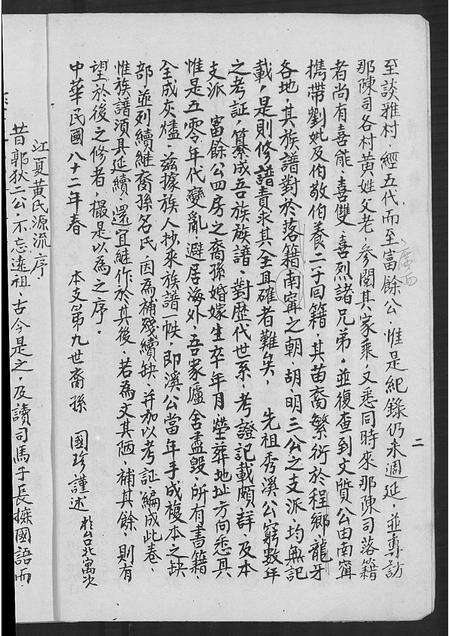 二
至談雅村，經五代，而至富餘公，惟是紀錄仍未週延，並專訪
那陳司各村黃姓父老，參閱其家乘，又悉同時來那陳司落籍
者尚有喜能、喜雙、喜烈諸兄弟，並復查到文質公由南寧
携帶劉妣及伯敬伯養二子回籍，其苗裔繁衍於程鄉、龍牙
各地，其族譜對於落籍南寧之朝、胡、明三公之支派，均無記
載，是則修譜責求其全且確者難矣。　先祖秀溪公窮數年
之考証，纂成吾族族譜，對歷代世系，考證記載頗詳，及本
支派　富餘公四房之裔孫婚嫁生卒年月，塋葬地址方向悉具
惟是五零年代變亂，避居海外，吾家廬舍盡毀，所有書籍
全成灰燼，茲據族人抄來族譜一帙，即溪公當年手成複本之缺
部，並列續維裔孫名氏，因為補殘續缺，并加以考証編成此卷，
惟族譜須具延續，還宜継作於其後，若為文其陋，補其餘，則有
望於後之修者，撮是以為之序。
中華民國八十二年春　本支第九世裔孫　國珍謹述　於台北寓次
江夏黃氏源流序
昔郭狄二公，不忘遠祖，古今是之，及讀司馬子長採國語而